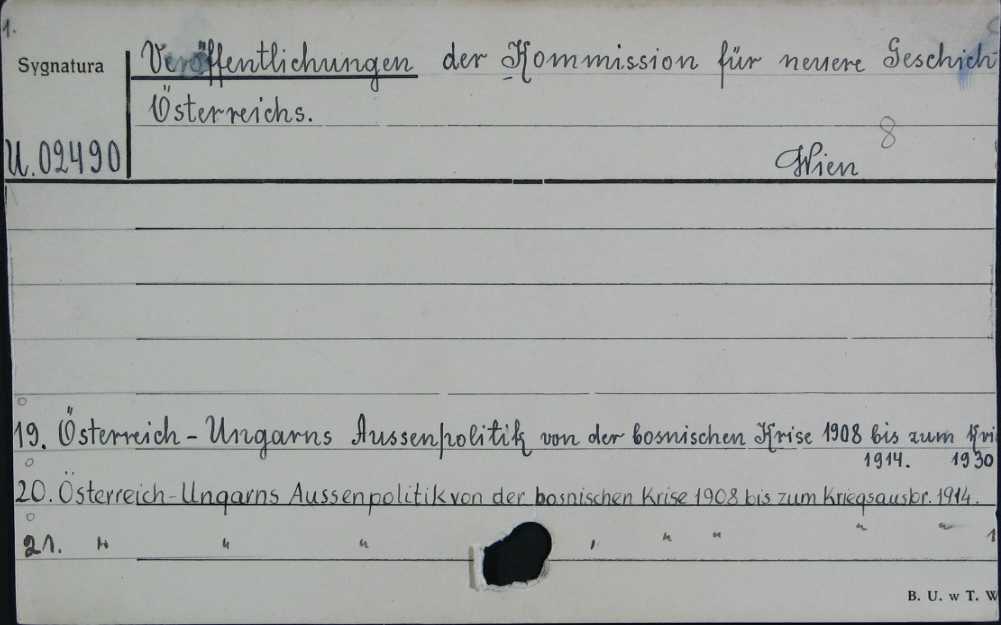 1.
Sygnatura
Veröffentlichungen der Kommission für neuere Geschich
Österreichs.
U.02490
8
Wien
19. Österreich-Ungarns Aussenpolitik von der bosnischen Krise 1908 bis zum Kri
1914. 1930
20. Österreich-Ungarns Aussenpolitik von der bosnischen Krise 1908 bis zum Kriegsausbr. 1914.
21. " " " " " " " " 1
B. U. w T. W